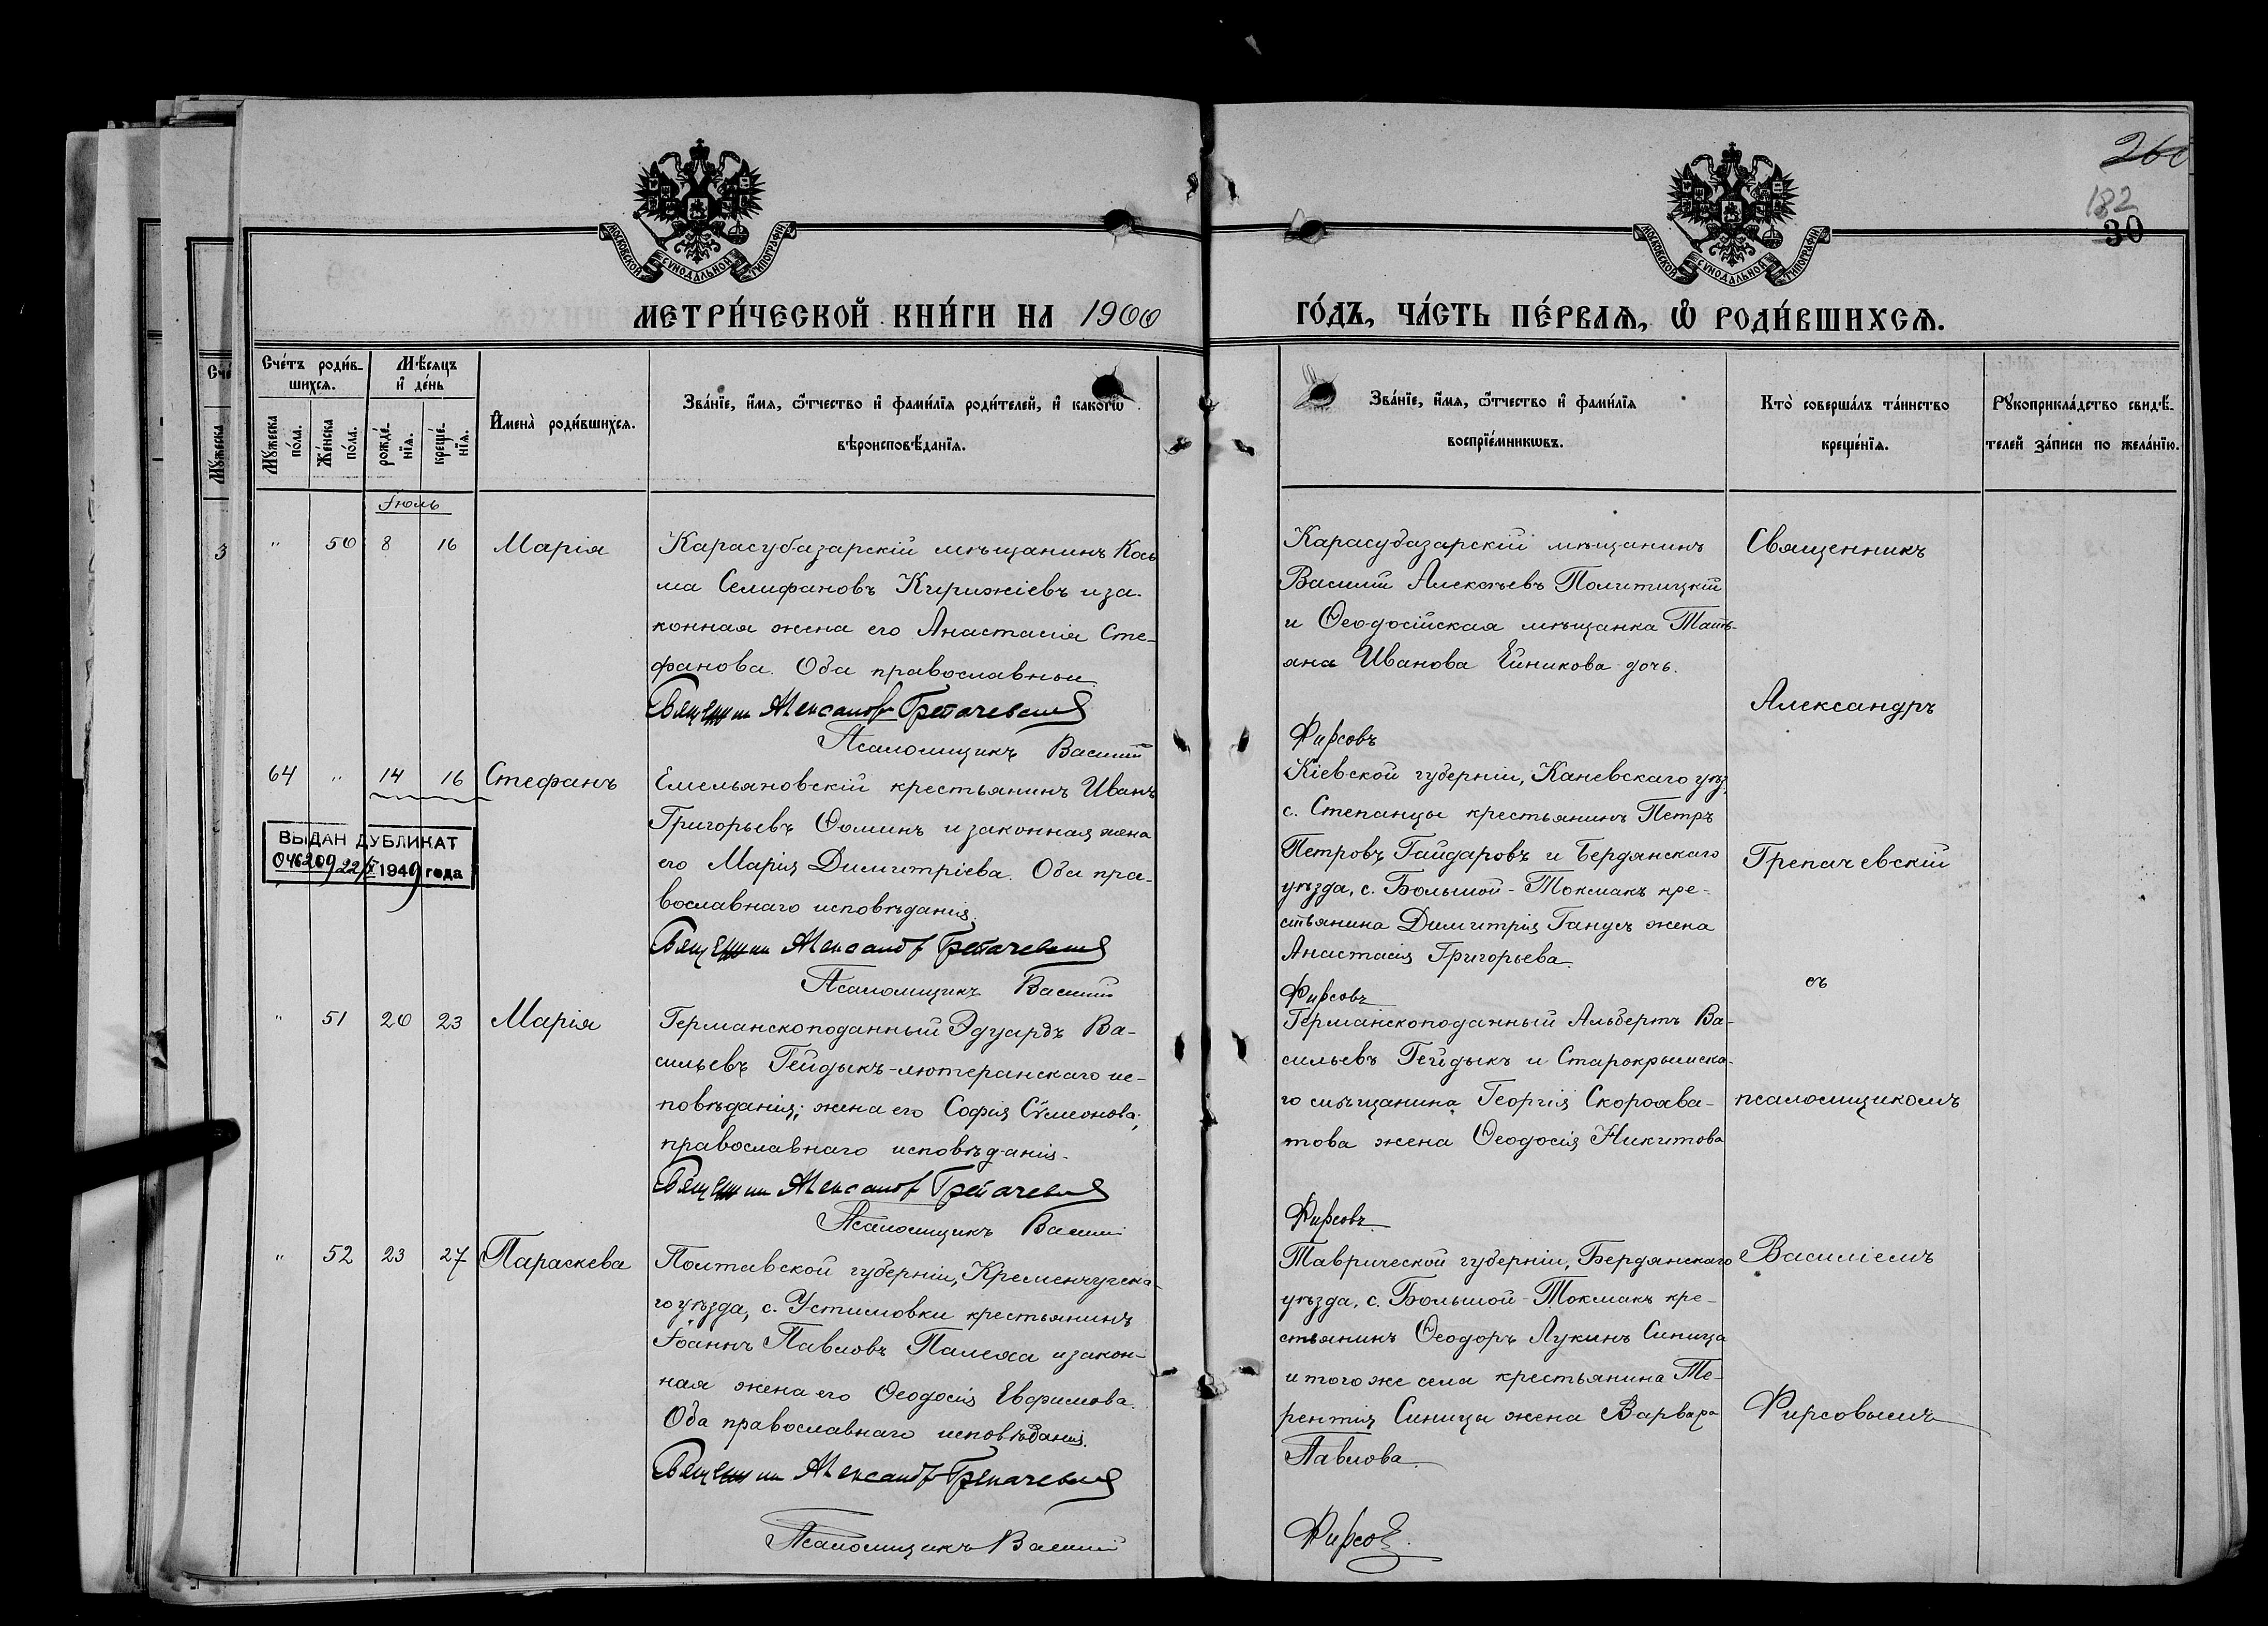 260
182
30
МОСКОВСКОЙ СѴНОДАЛЬНОЙ ТИПОГРАФІИ
МОСКОВСКОЙ СѴНОДАЛЬНОЙ ТИПОГРАФІИ
МЕТРИ́ЧЕСКОЙ КНИ́ГИ НА 1900
ГО́ДЪ, ЧА́СТЬ ПЕ́РВАѦ, Ѿ РОДИ́ВШИХСѦ.
Сче́тъ роди́в-
шихсѧ.
Мѣ́сѧцъ
и҆ де́нь
Мꙋ́жеска
по́ла.
Же́нска
по́ла.
рожде́-
нїѧ.
креще́-
нїѧ.
И҆мена̀ роди́вшихсѧ.
Зва́нїе, и҆́мѧ, ѻ҆́тчество и҆ фами́лїѧ роди́телей, и҆ како́гѡ
вѣроисповѣ́данїѧ.
Зва́нїе, и҆́мѧ, ѻ҆́тчество и҆ фами́лїѧ
воспрїе́мникѡвъ.
Кто̀ соверша́лъ та́инство
креще́нїѧ.
Рꙋкоприкла́дство свидѣ́-
телей за́писи по жела́нїю.
Іюль
" 50 8 16 Марія
Карасубазарскій мѣщанинъ Кось
ма Селифановъ Кирижіевъ и за-
конная жена его Анастасія Сте-
фанова. Оба православные
Священник Александр Грепачевский
Псаломщикъ Василій
Карасубазарскій мѣщанинъ
Василій Алексѣевъ Политицкій
и Ѳеодосійская мѣщанка Тать-
яна Иванова Ейникова дочь.
Фирсовъ
64 " 14 16 Стефанъ
ВЫДАН ДУБЛИКАТ
046209 22/V 1949 года
Емельяновскій крестьянинъ Иванъ
Григорьевъ Ѳоминъ и законная жена
его Марія Димитріева. Оба пра-
вославнаго исповѣданія.
Священник Александр Грепачевский
Псаломщикъ Василій
Кіевской губерніи, Каневскаго уѣз.
с. Степанцы крестьянинъ Петръ
Петровъ Гайдаровъ и Бердянскаго
уѣзда, с. Большой-Токмакъ кре-
стьянина Димитрія Ганусъ жена
Анастасія Григорьева.
Фирсовъ
" 51 20 23 Марія
Германскоподанный Эдуардъ Ва-
сильевъ Гейдыкъ-лютеранскаго ис-
повѣданія; жена его Софія Сѵмеонова,
православнаго исповѣданія.
Священник Александр Грепачевский
Псаломщикъ Василій
Германскоподанный Альбертъ Ва-
сильевъ Гейдыкъ и Старокрымска-
го мѣщанина Георгія Скорохва-
това жена Ѳеодосія Никитова
Фирсовъ
" 52 23 27 Параскева
Полтавской губерніи, Кременчугска-
го уѣзда, с. Устимовки крестьянинъ
Іоаннъ Павловъ Палеха и закон-
ная жена его Ѳеодосія Евфимова.
Оба православнаго исповѣданія.
Священник Александр Грепачевский
Псаломщикъ Василій
Таврической губерніи, Бердянскаго
уѣзда, с. Большой-Токмакъ кре-
стьянинъ Ѳеодоръ Лукинъ Синица
и того же села крестьянина Те-
рентія Синицы жена Варвара
Павлова.
Фирсовъ
Священникъ
Александръ
Грепачевскій
съ
псаломщикомъ
Василіемъ
Фирсовымъ